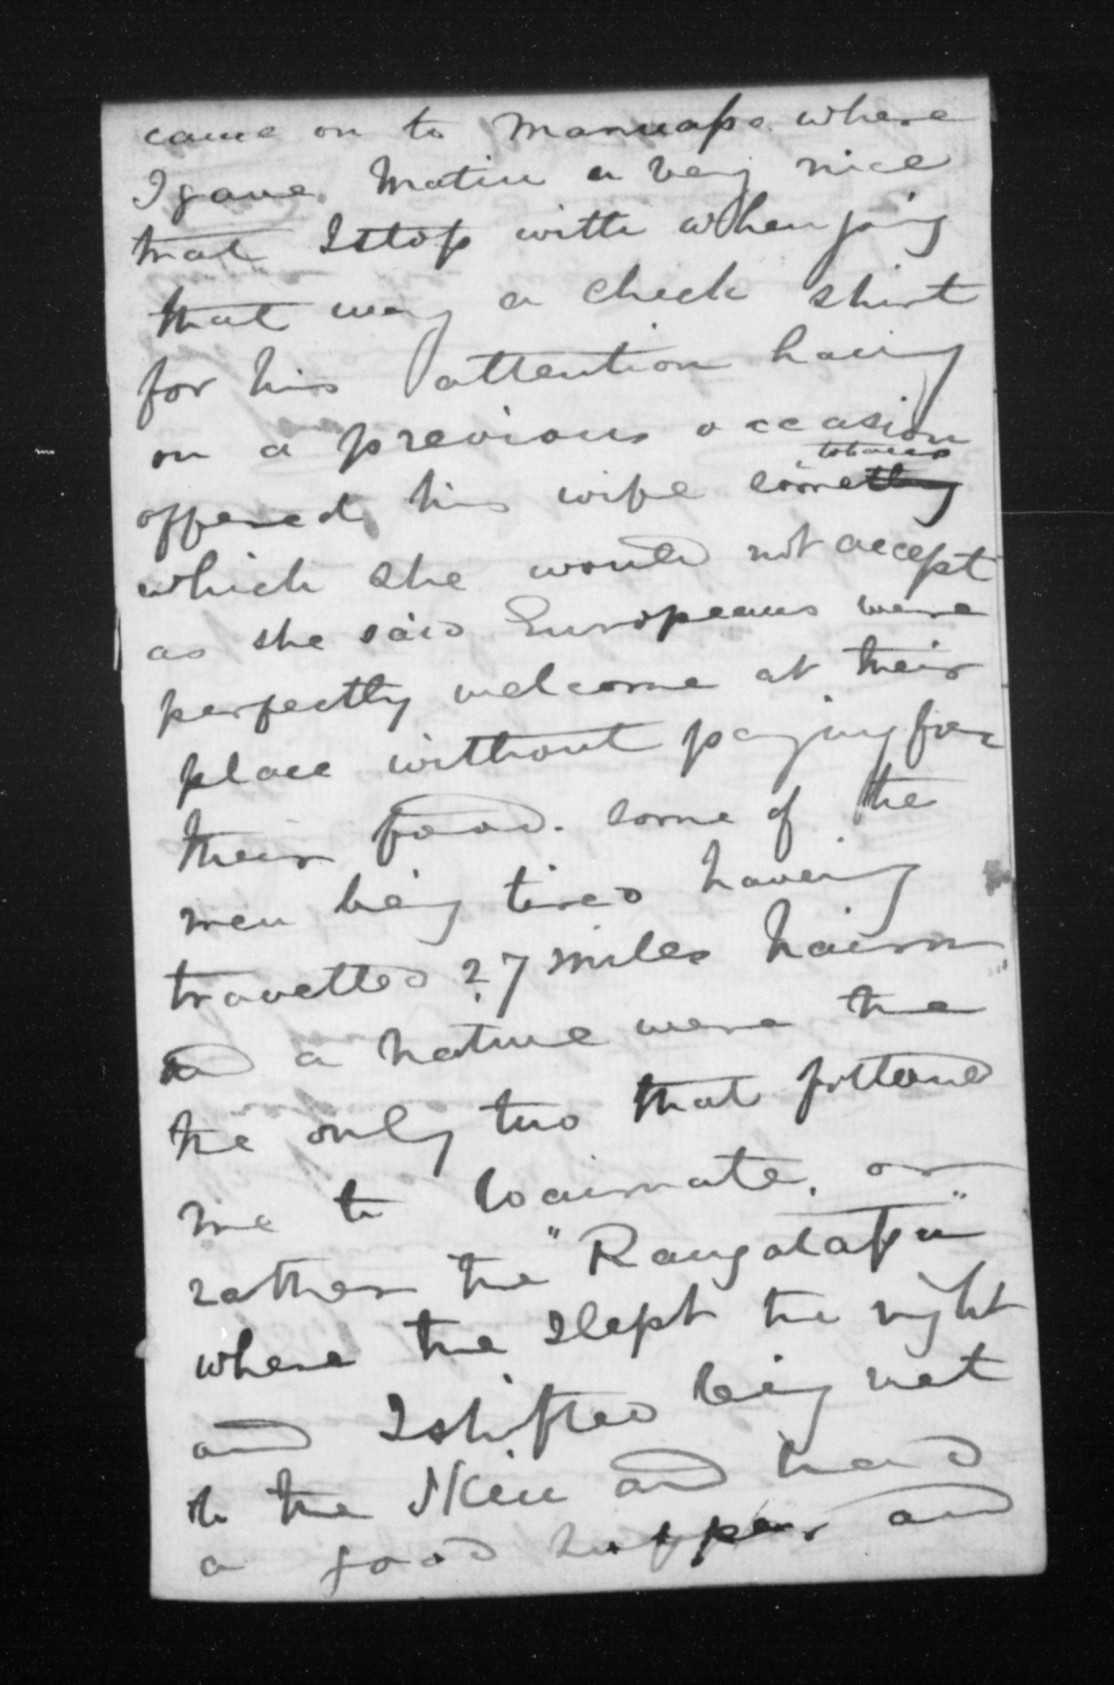 came on to Manuapo where
I gave Matiu a very nice
that I stop with when going
that way a check shirt
for his attention having
on a previous occasion
tobacco
offered his wife something
which she would not accept
as she said Europeans were
perfectly welcome at their
place without paying for
their food. some of the
men being tired having
travelled 27 miles
and a native were the
the only two that followed
me to Waimate, or
rather the "Rangatapu"
where the slept the night
and I shifted being wet
to the and had
a good supper and